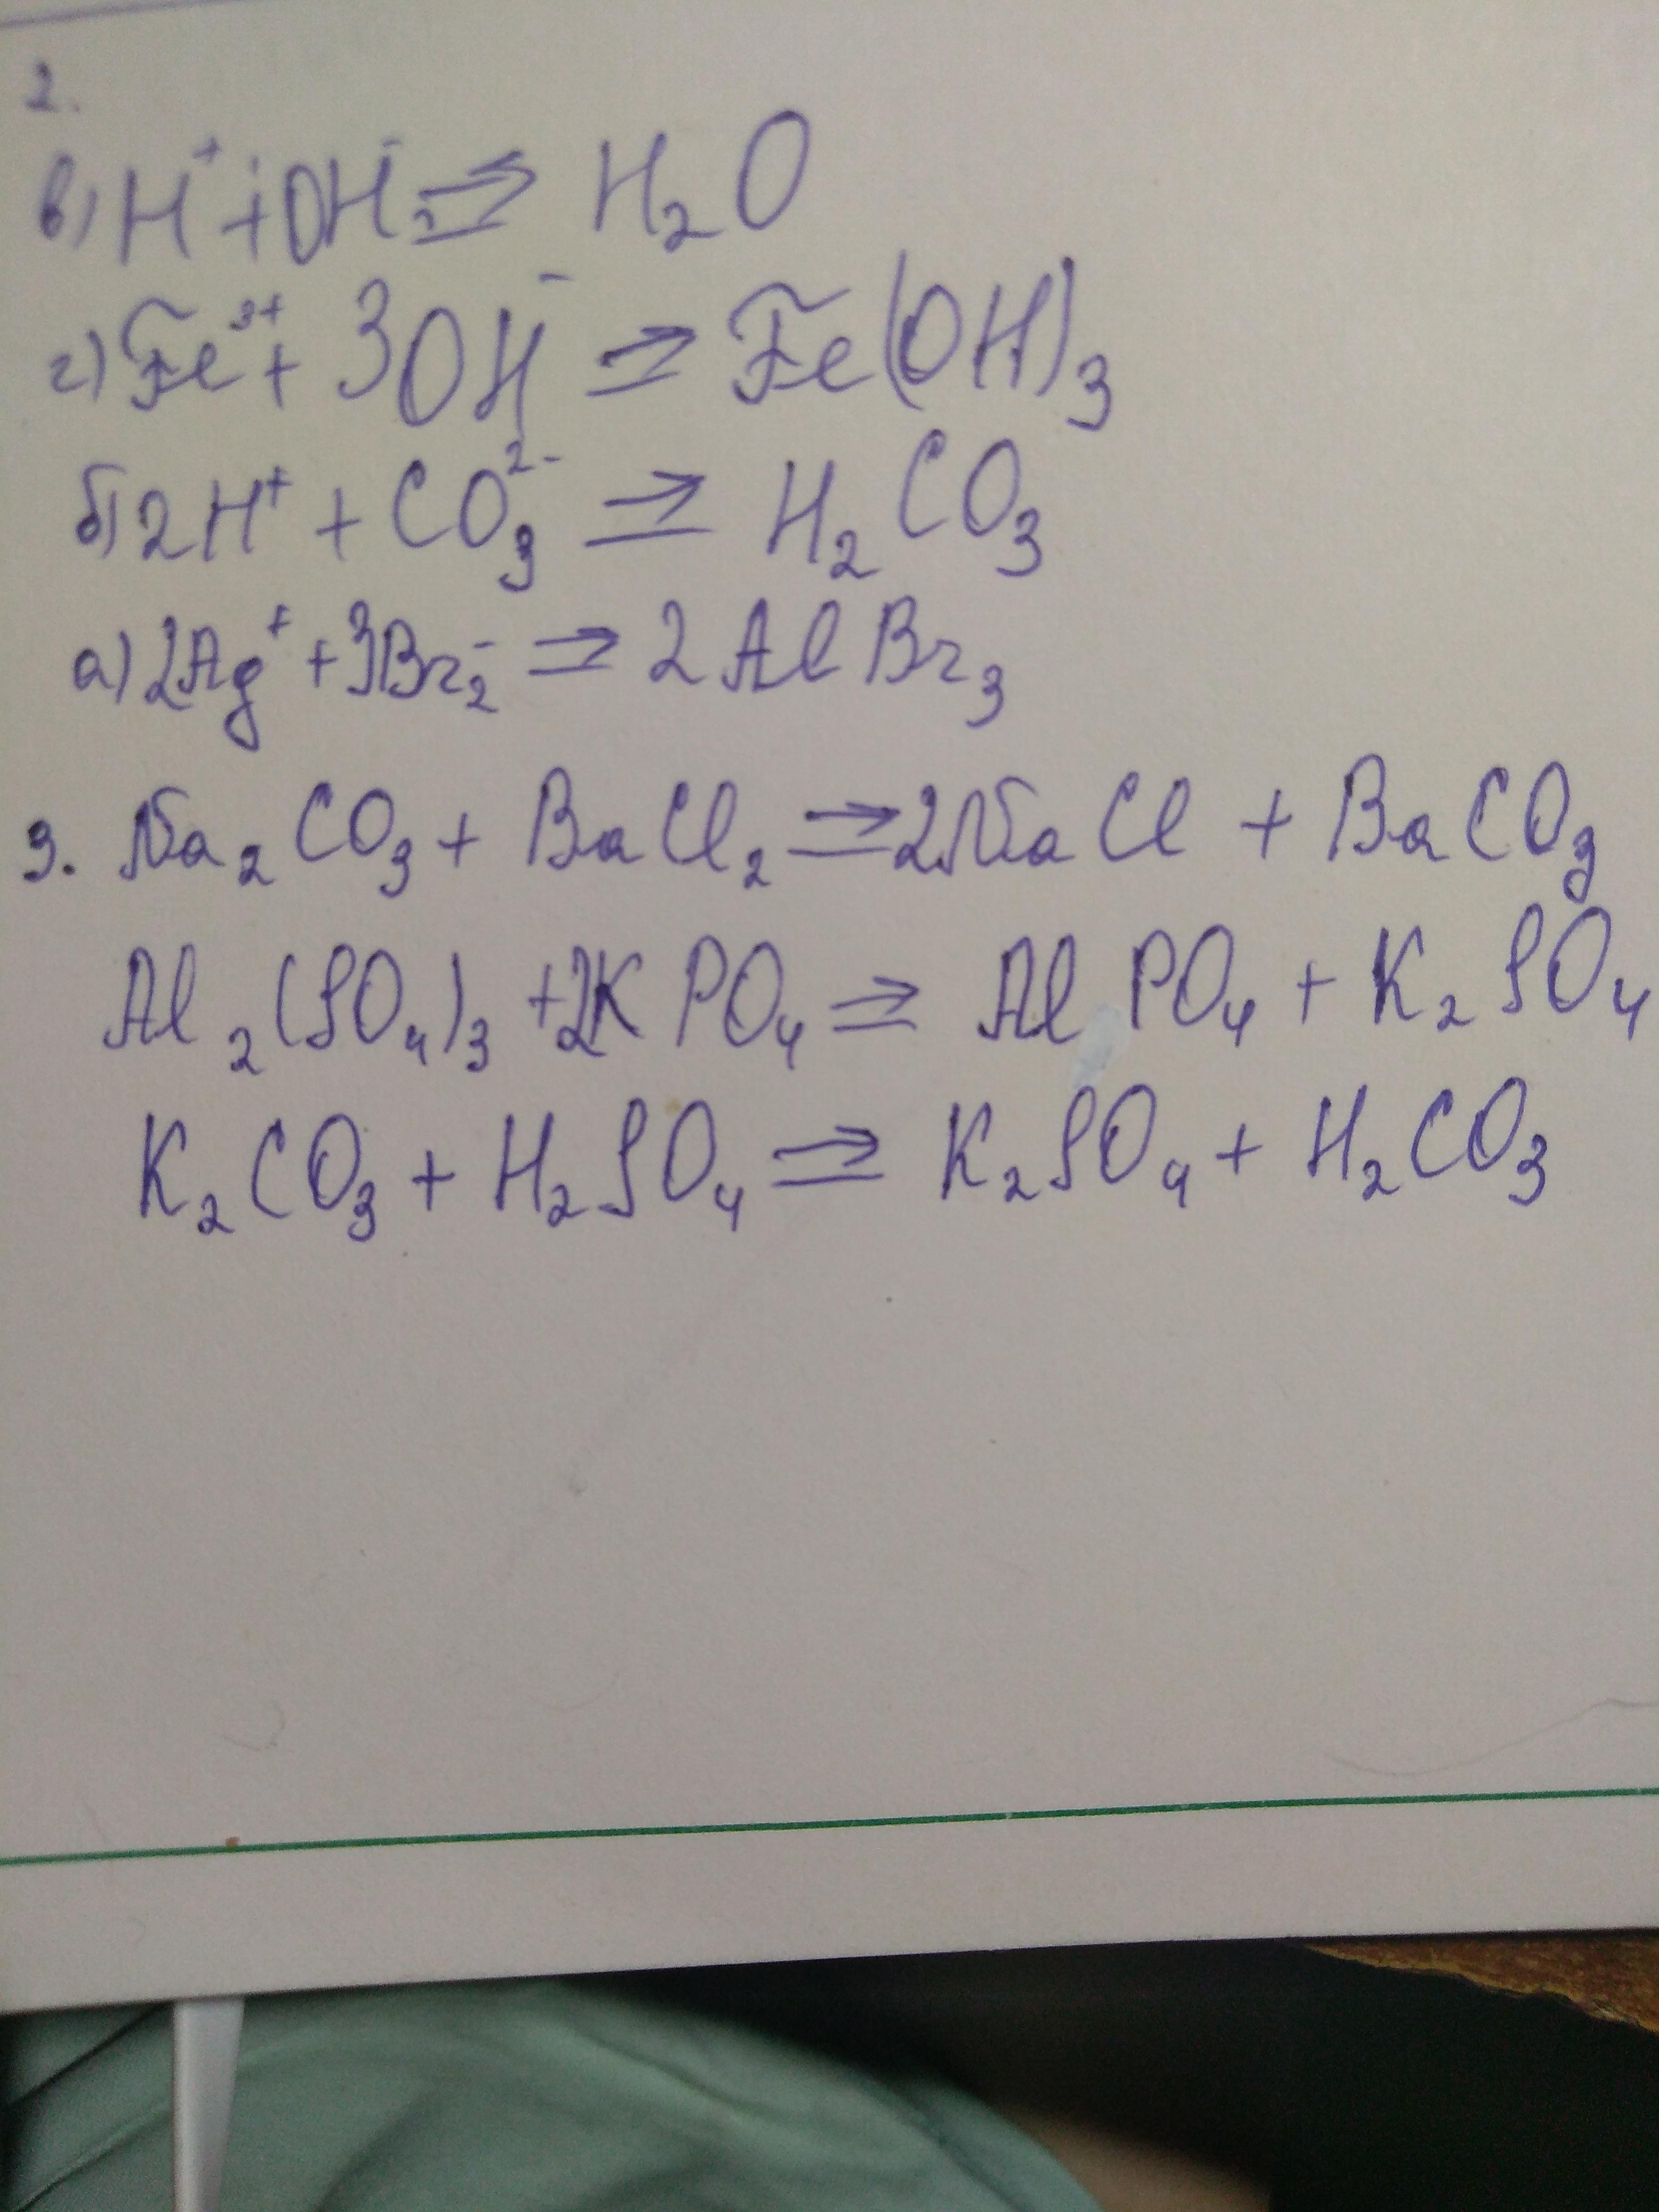 2.
в) H⁺ + OH⁻₂ ⇒ H₂O
г) Fe³⁺ + 3OH⁻ ⇒ Fe(OH)₃
б) 2H⁺ + CO₃²⁻ ⇒ H₂CO₃
а) 2Ag⁺ + 3Br₂⁻ ⇒ 2AlBr₃
3. Na₂CO₃ + BaCl₂ ⇒ 2NaCl + BaCO₃
Al₂(SO₄)₃ + 2K PO₄ ⇒ AlPO₄ + K₂SO₄
K₂CO₃ + H₂SO₄ ⇒ K₂SO₄ + H₂CO₃